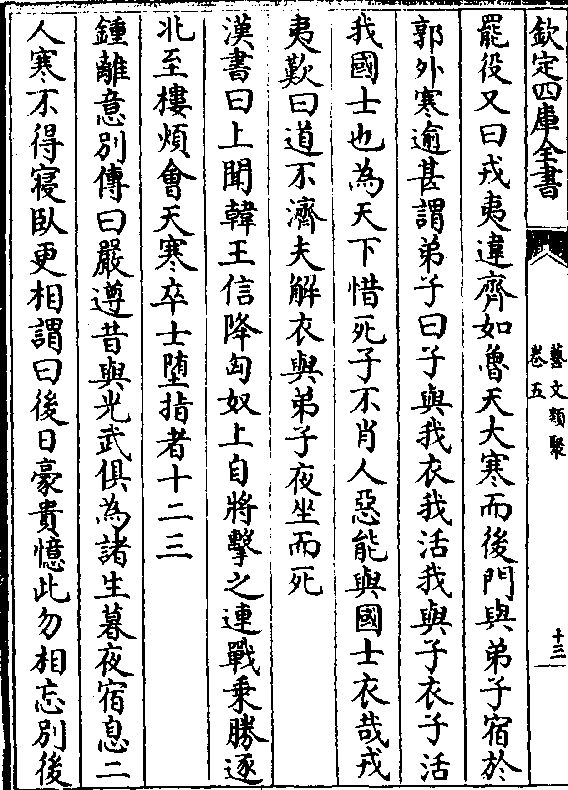 欽定四庫全書
藝文類聚
卷五
十三
罷役又曰戎夷違齊如魯天大寒而後門與弟子宿於
郭外寒逾甚謂弟子曰子與我衣我活我與子衣子活
我國士也為天下惜死子不肖人惡能與國士衣哉戎
夷歎曰道不濟夫解衣與弟子夜坐而死
漢書曰上聞韓王信降匈奴上自將擊之連戰乗勝逐
北至樓煩會天寒卒士堕指者十二三
鍾離意別傳曰嚴遵昔與光武俱為諸生暮夜宿息二
人寒不得寝臥更相謂曰後日豪貴憶此勿相忘別後